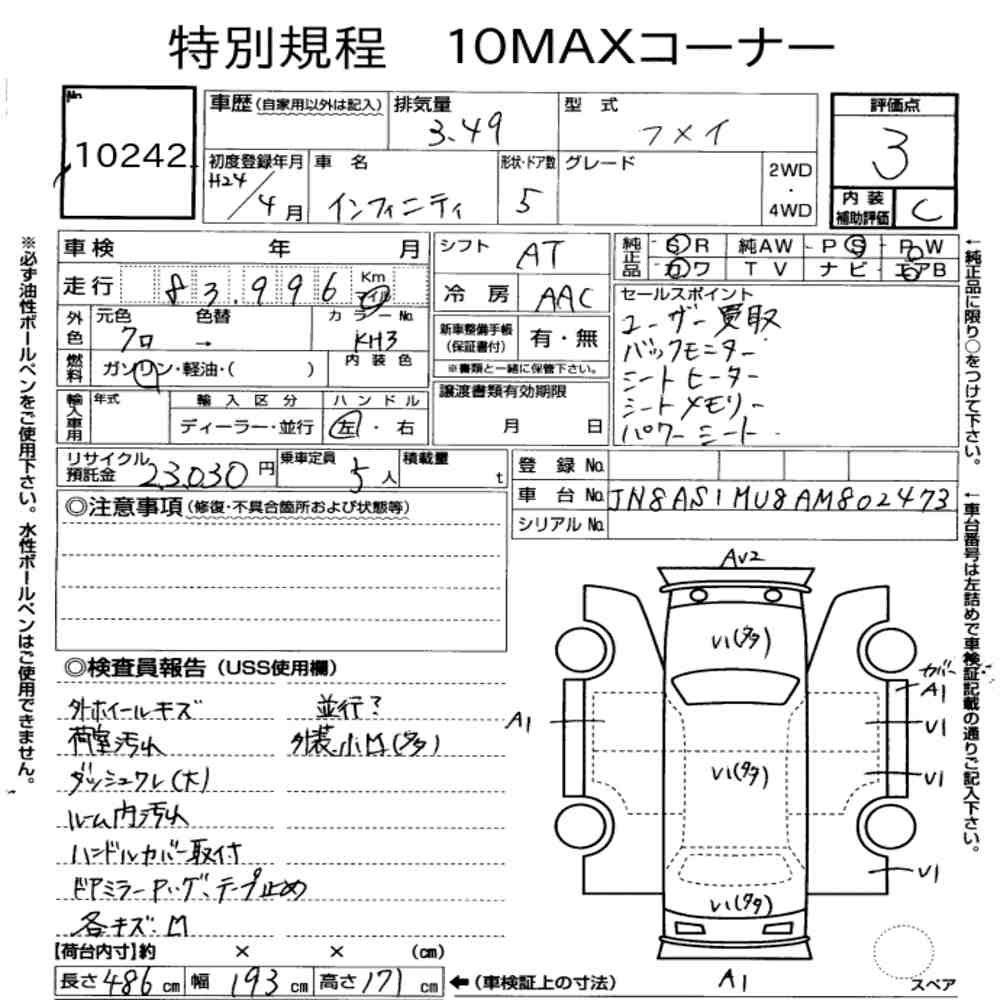 特別規程 10MAXコーナー
No.
10242
車歴(自家用以外は記入)
排気量
3.49
型 式
フメイ
評価点
3
初度登録年月
H24/4月
車 名
インフィニティ
形状・ドア数
5
グレード
2WD
・
4WD
内装
補助評価
C
車検 年 月
シフト
AT
純正品
S R
純AW
P S
P W
カ ワ
T V
ナ ビ
エアB
走行
83,996
Km
マイル
冷 房
AAC
セールスポイント
ユーザー買取
バックモニター
シートヒーター
シートメモリー
パワーシート
外色
元色
クロ
色替
→
カラーNo.
KH3
新車整備手帳
(保証書付)
有・無
※書類と一緒に保管下さい。
燃料
ガソリン・軽油・( )
内装色
輸入車用
年式
輸入区分
ハンドル
ディーラー・並行
左・右
譲渡書類有効期限
月 日
リサイクル
預託金
23,030円
乗車定員
5人
積載量
t
登 録 No.
車 台 No.
JN8AS1MU8AM802473
シリアル No.
◎注意事項(修復・不具合箇所および状態等)
◎検査員報告(USS使用欄)
外ホイールキズ
並行?
荷室汚れ
外装小M(タタ)
ダッシュワレ(大)
ルーム内汚れ
ハンドルカバー取付
ドアミラーPハゲ、テープ止め
各キズ・M
【荷台内寸】約 × × (cm)
長さ486cm
幅193cm
高さ171cm
←(車検証上の寸法)
AV2
V1(タタ)
カバー
A1
A1
V1
V1(タタ)
V1
V1
V1(タタ)
A1
スペア
※必ず油性ボールペンをご使用下さい。水性ボールペンはご使用できません。
←純正品に限り○をつけて下さい。
←車台番号は左詰めで車検証記載の通りご記入下さい。